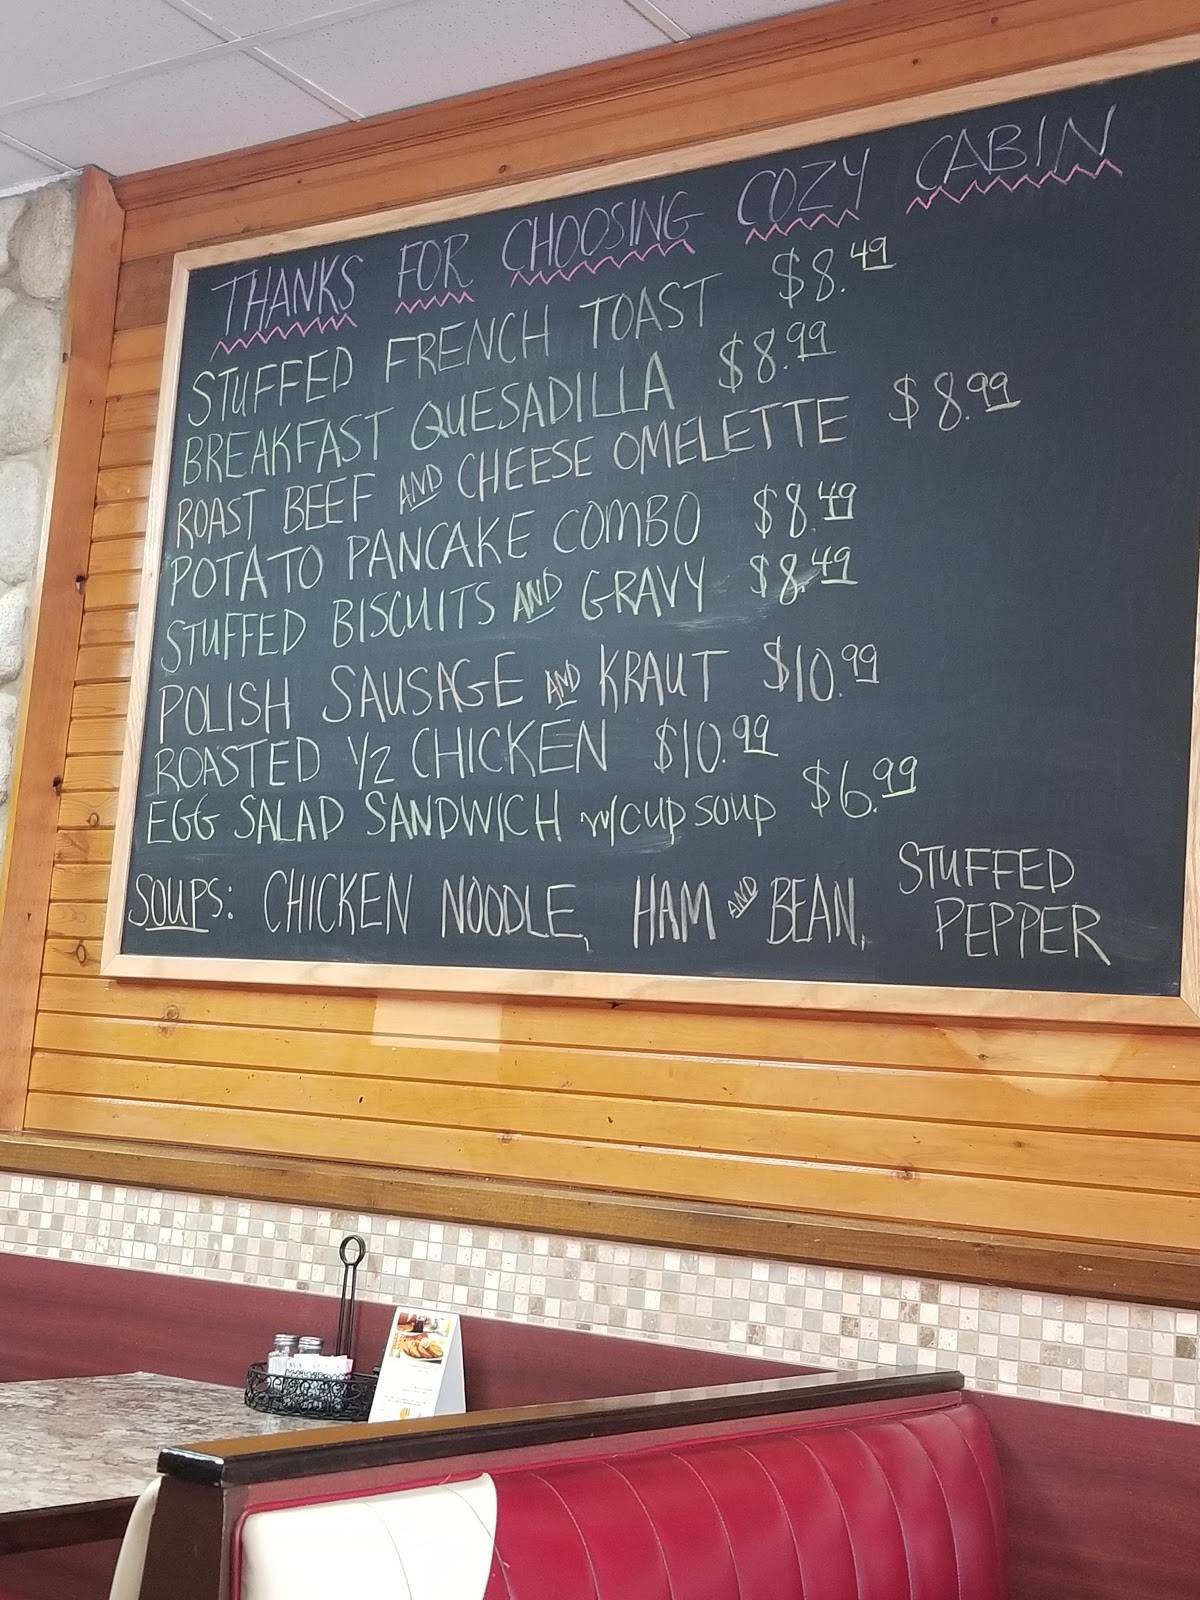 THANKS FOR CHOOSING COZY CABIN
STUFFED FRENCH TOAST $8.49
BREAKFAST QUESADILLA $8.99
ROAST BEEF AND CHEESE OMELETTE $8.99
POTATO PANCAKE COMBO $8.49
STUFFED BISCUITS AND GRAVY $8.49
POLISH SAUSAGE AND KRAUT $10.99
ROASTED 1/2 CHICKEN $10.99
EGG SALAD SANDWICH w/cup soup $6.99
SOUPS: CHICKEN NOODLE, HAM AND BEAN, STUFFED
PEPPER